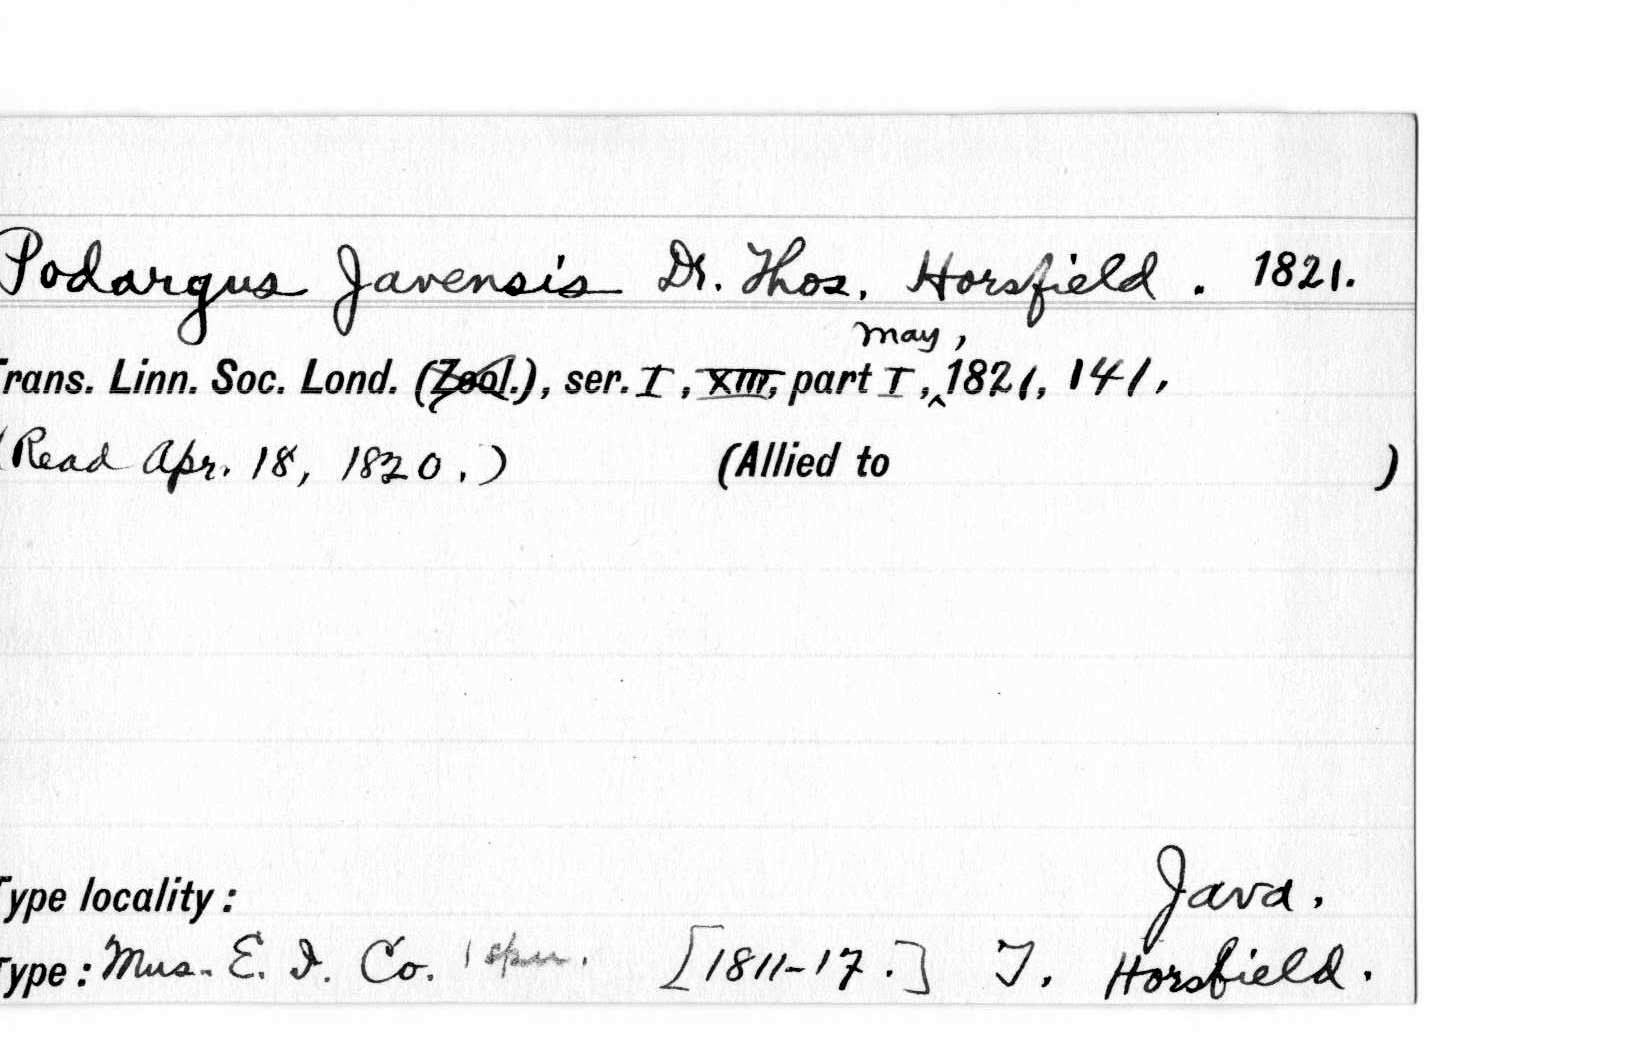 Podargus Javensis Dr. Thos. Horsfield. 1821.
May,
Trans. Linn. Soc. Lond. (Zool.), ser. I, XIII, part I, ^1821, 141,
(Read Apr. 18, 1820.) (Allied to )
Type locality: Java.
Type: Mus. E. I. Co. 1 [1811-17.] T. Horsfield.